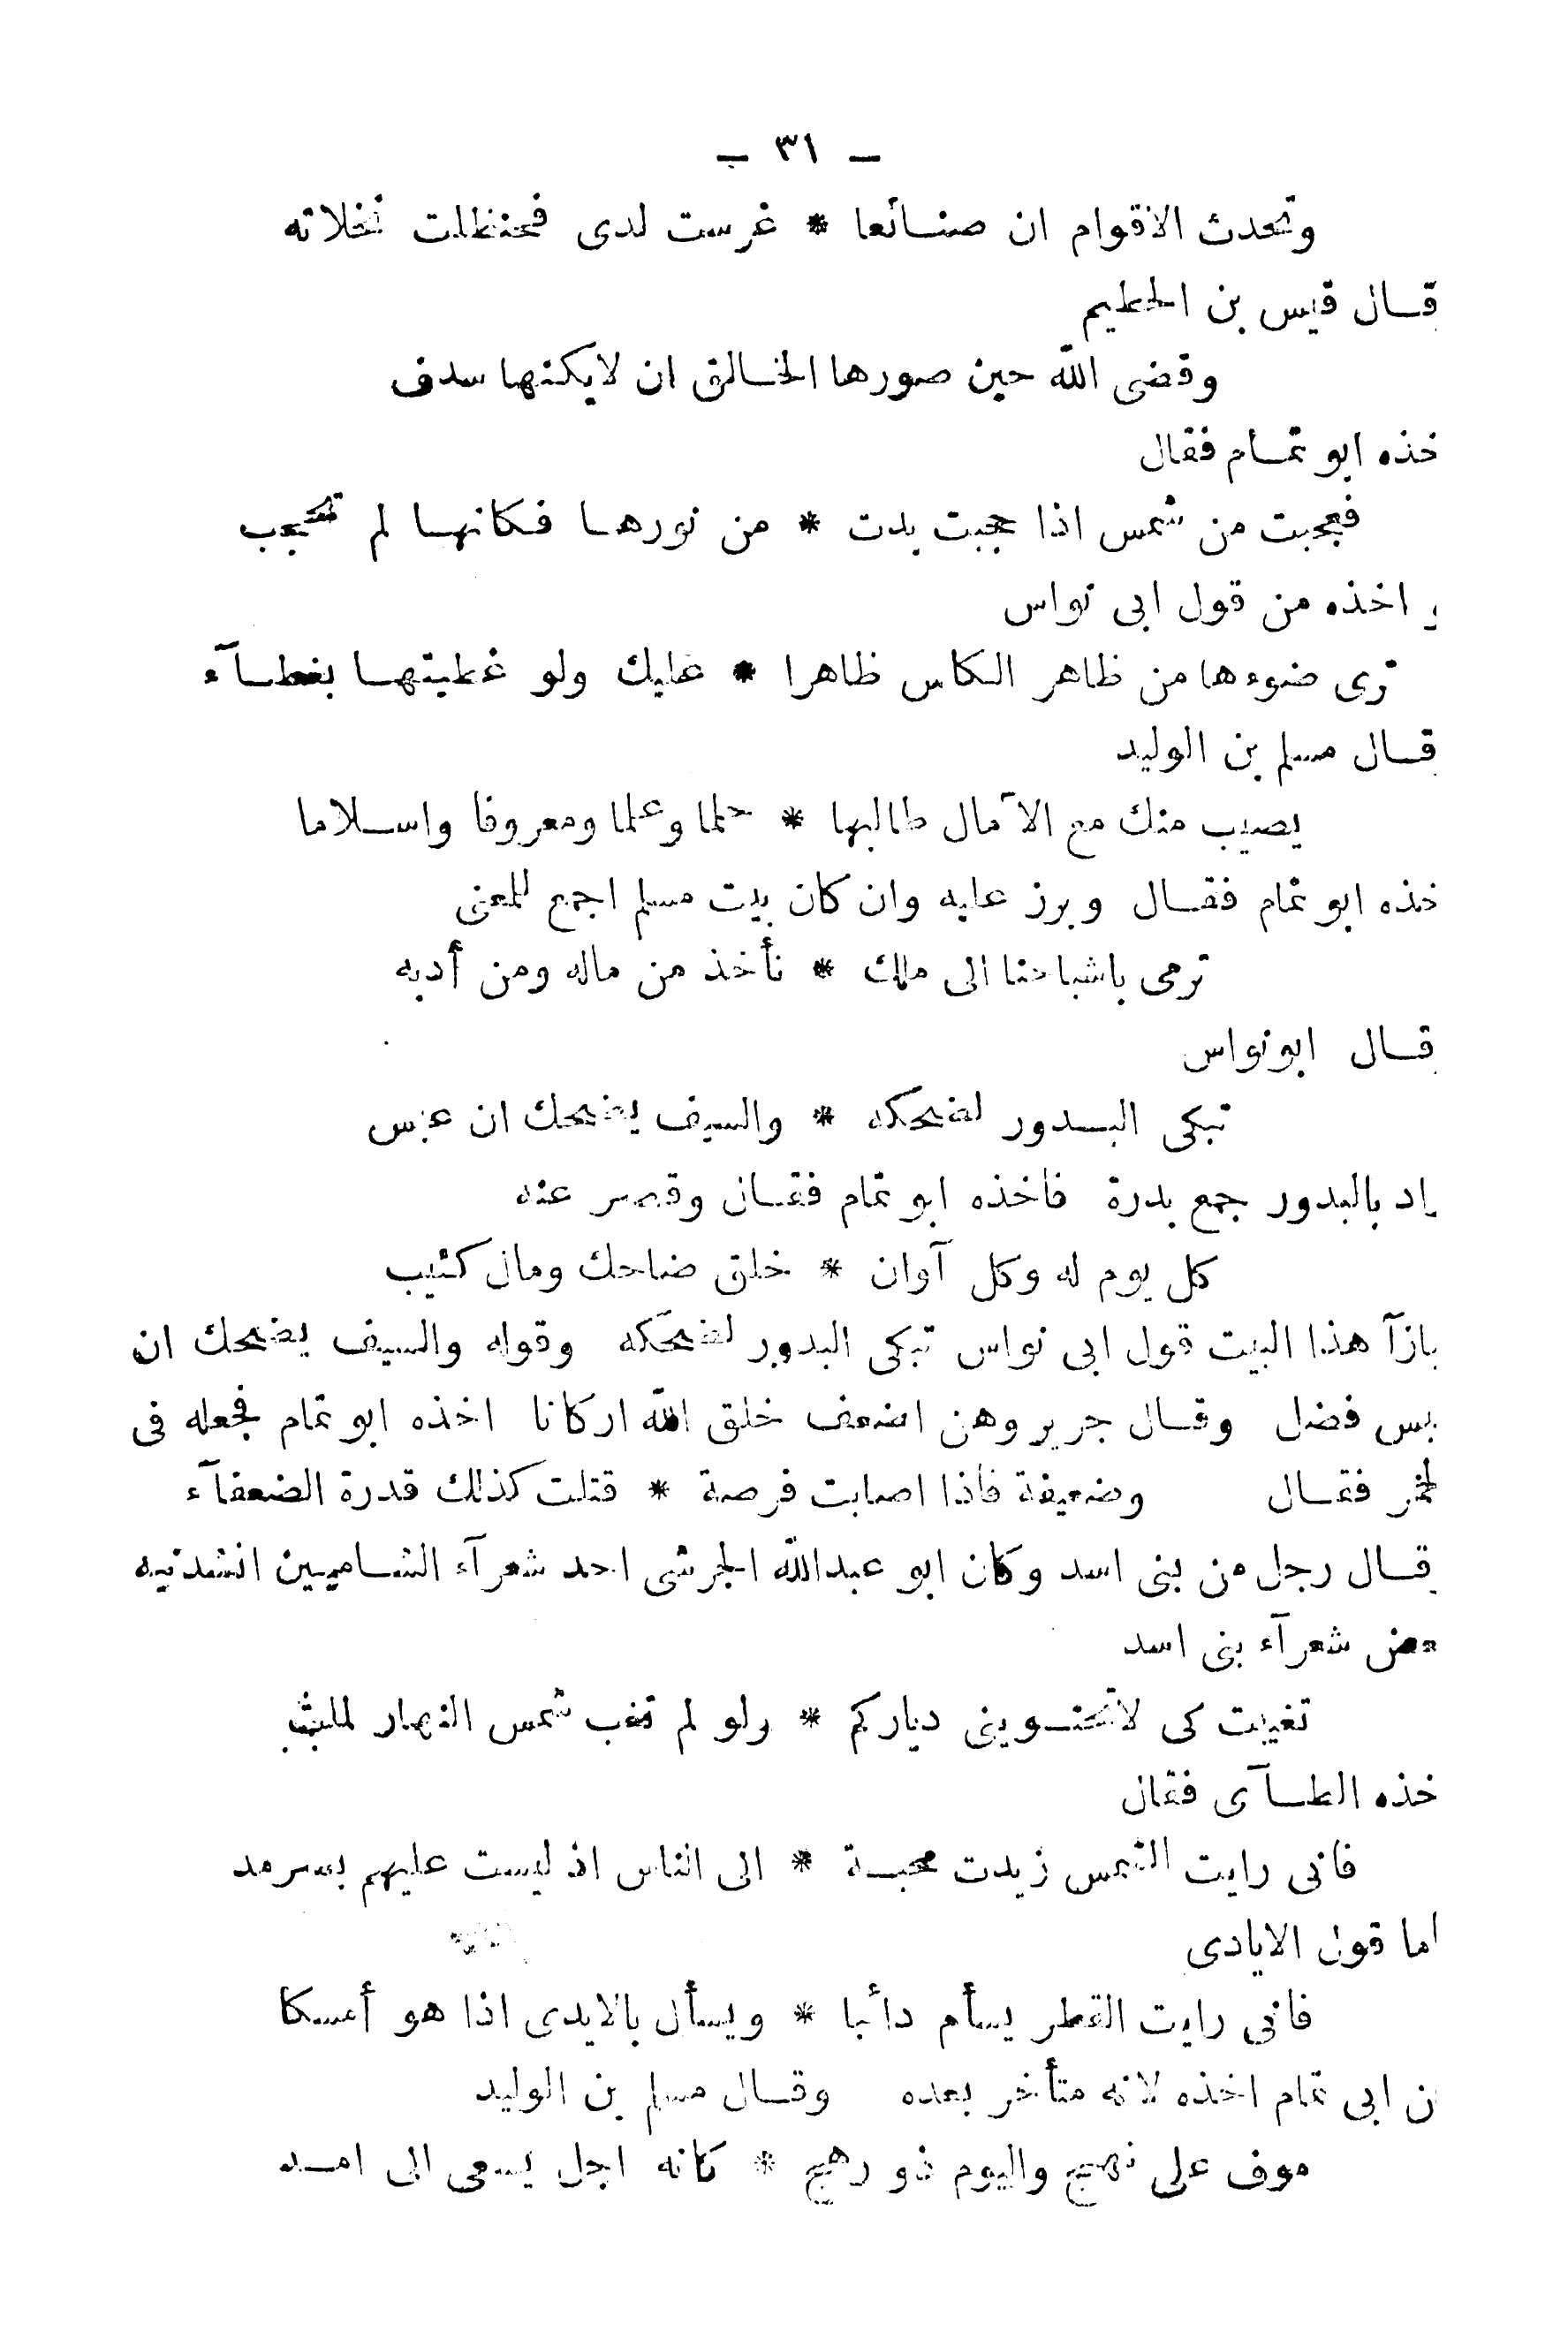 – ٣١ –
وتحدث الاقوام ان صنـائعا * غرست لدى فحنظلت نخلاته
قـال قيس بن الخطيم
وقضى الله حين صورها الخـالق ان لايكنها سدف
خذه ابو تمـام فقال
فعجبت من شمس اذا حجبت بدت * من نورهـا فكانهـا لم تحجب
و اخذه من قول ابى نواس
ترى ضوءها من ظاهر الكاس ظاهرا * عليك ولو غطيتهـا بغطـآء
قـال مسلم بن الوليد
يصيب منك مع الآمال طالبها * حلما وعلما ومعروفا واسـلاما
خذه ابو تمام فقـال وبرز عليه وان كان بيت مسلم اجمع للمعنى
ترمى باشباحنا الى ملك * نأخذ من ماله ومن أدبه
قـال ابونواس
تبكى البـدور لضحكه * والسيف يضحك ان عبس
راد بالبدور جمع بدرة فاخذه ابو تمام فقـال وقصر عنه
كل يوم له وكل آوان * خلق ضاحك ومال كئيب
بازآ هذا البيت قول ابى نواس تبكى البدور لضحكه وقوله والسيف يضحك ان
بس فضل وقـال جرير وهن اضعف خلق الله اركانا اخذه ابو تمام فجعله فى
لخمر فقـال وضعيفة فاذا اصابت فرصة * قتلت كذلك قدرة الضعفآء
قـال رجل من بنى اسد وكان ابو عبدالله الجرشى احد شعرآء الشـاميين انشدنيه
عض شعرآء بنى اسد
تغيبت كى لاتجتـوينى دياركم * ولو لم تغب شمس النهار لملت
خذه الطـآى فقال
فانى رايت الشمس زيدت محبـة * الى الناس اذ ليست عليهم بسرمد
اما قول الايادى
فانى رايت القطر يسأم دائبا * ويسأل بالايدى اذا هو أمسكا
ن ابى تمام اخذه لانه متأخر بعده وقـال مسلم بن الوليد
موف على نهج واليوم ذو رهج * كانه اجل يسعى الى امـد